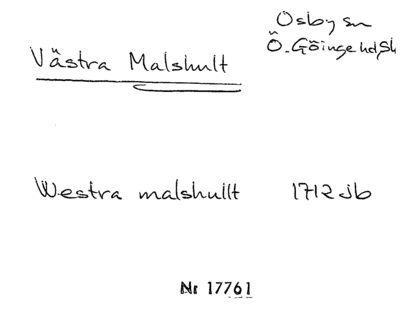 Osby sn
Västra Malshult
Ö. Göinge hd, Sk
Westra malshullt 1712 Jb
Nr 17761